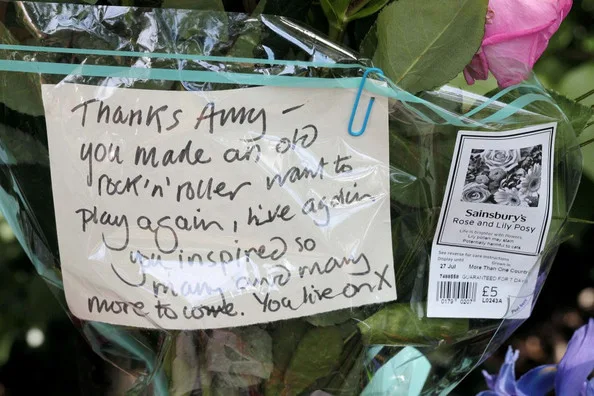 Thanks Amy -
you made an old
rock'n'roller want to
play again, live again
you inspired so
many and many
more to come. You live on X
Sainsbury's
Rose and Lily Posy
Life is brighter with flowers
Lily pollen may stain
Potentially harmful to cats
See reverse for care instructions
Display until
Grown in
27 Jul
More Than One Country
GUARANTEED FOR 7 DAYS
£5
L0243A